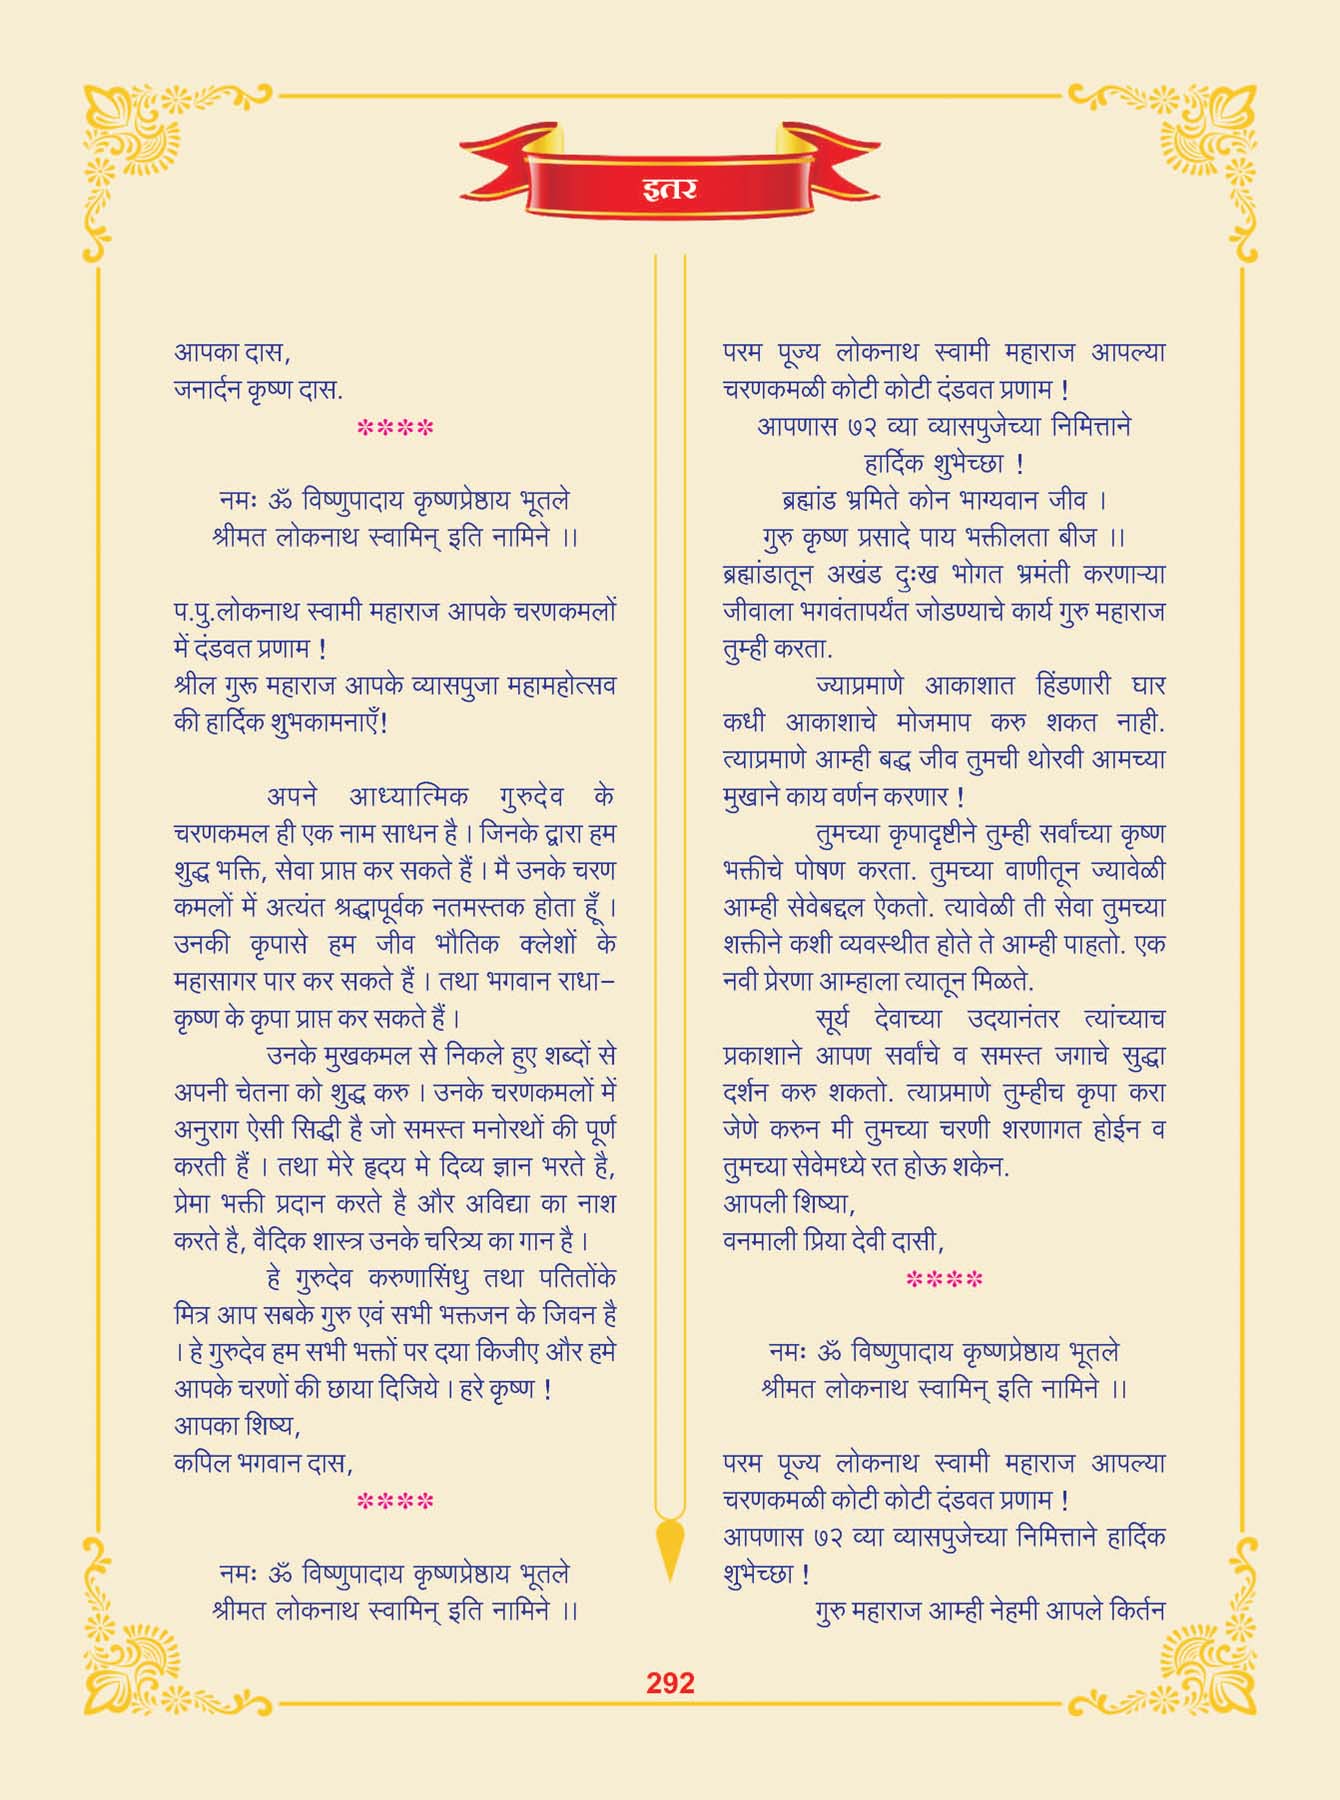 इतर
आपका दास,
जनार्दन कृष्ण दास.
****
नमः ॐ विष्णुपादाय कृष्णप्रेष्ठाय भूतले
श्रीमत लोकनाथ स्वामिन् इति नामिने ।।
प.पु.लोकनाथ स्वामी महाराज आपके चरणकमलों
में दंडवत प्रणाम !
श्रील गुरू महाराज आपके व्यासपुजा महामहोत्सव
की हार्दिक शुभकामनाएँ!
अपने आध्यात्मिक गुरुदेव के
चरणकमल ही एक नाम साधन है । जिनके द्वारा हम
शुद्ध भक्ति, सेवा प्राप्त कर सकते हैं । मै उनके चरण
कमलों में अत्यंत श्रद्धापूर्वक नतमस्तक होता हूँ ।
उनकी कृपासे हम जीव भौतिक क्लेशों के
महासागर पार कर सकते हैं । तथा भगवान राधा-
कृष्ण के कृपा प्राप्त कर सकते हैं ।
उनके मुखकमल से निकले हुए शब्दों से
अपनी चेतना को शुद्ध करु । उनके चरणकमलों में
अनुराग ऐसी सिद्धी है जो समस्त मनोरथों की पूर्ण
करती हैं । तथा मेरे हृदय मे दिव्य ज्ञान भरते है,
प्रेमा भक्ती प्रदान करते है और अविद्या का नाश
करते है, वैदिक शास्त्र उनके चरित्र्य का गान है ।
हे गुरुदेव करुणासिंधु तथा पतितोंके
मित्र आप सबके गुरु एवं सभी भक्तजन के जिवन है
। हे गुरुदेव हम सभी भक्तों पर दया किजीए और हमे
आपके चरणों की छाया दिजिये । हरे कृष्ण !
आपका शिष्य,
कपिल भगवान दास,
****
नमः ॐ विष्णुपादाय कृष्णप्रेष्ठाय भूतले
श्रीमत लोकनाथ स्वामिन् इति नामिने ।।
परम पूज्य लोकनाथ स्वामी महाराज आपल्या
चरणकमळी कोटी कोटी दंडवत प्रणाम !
आपणास ७२ व्या व्यासपुजेच्या निमित्ताने
हार्दिक शुभेच्छा !
ब्रह्मांड भ्रमिते कोन भाग्यवान जीव ।
गुरु कृष्ण प्रसादे पाय भक्तीलता बीज ।।
ब्रह्मांडातून अखंड दुःख भोगत भ्रमंती करणाऱ्या
जीवाला भगवंतापर्यंत जोडण्याचे कार्य गुरु महाराज
तुम्ही करता.
ज्याप्रमाणे आकाशात हिंडणारी घार
कधी आकाशाचे मोजमाप करु शकत नाही.
त्याप्रमाणे आम्ही बद्ध जीव तुमची थोरवी आमच्या
मुखाने काय वर्णन करणार !
तुमच्या कृपादृष्टीने तुम्ही सर्वांच्या कृष्ण
भक्तीचे पोषण करता. तुमच्या वाणीतून ज्यावेळी
आम्ही सेवेबद्दल ऐकतो. त्यावेळी ती सेवा तुमच्या
शक्तीने कशी व्यवस्थीत होते ते आम्ही पाहतो. एक
नवी प्रेरणा आम्हाला त्यातून मिळते.
सूर्य देवाच्या उदयानंतर त्यांच्याच
प्रकाशाने आपण सर्वांचे व समस्त जगाचे सुद्धा
दर्शन करु शकतो. त्याप्रमाणे तुम्हीच कृपा करा
जेणे करुन मी तुमच्या चरणी शरणागत होईन व
तुमच्या सेवेमध्ये रत होऊ शकेन.
आपली शिष्या,
वनमाली प्रिया देवी दासी,
****
नमः ॐ विष्णुपादाय कृष्णप्रेष्ठाय भूतले
श्रीमत लोकनाथ स्वामिन् इति नामिने ।।
परम पूज्य लोकनाथ स्वामी महाराज आपल्या
चरणकमळी कोटी कोटी दंडवत प्रणाम !
आपणास ७२ व्या व्यासपुजेच्या निमित्ताने हार्दिक
शुभेच्छा !
गुरु महाराज आम्ही नेहमी आपले किर्तन
292